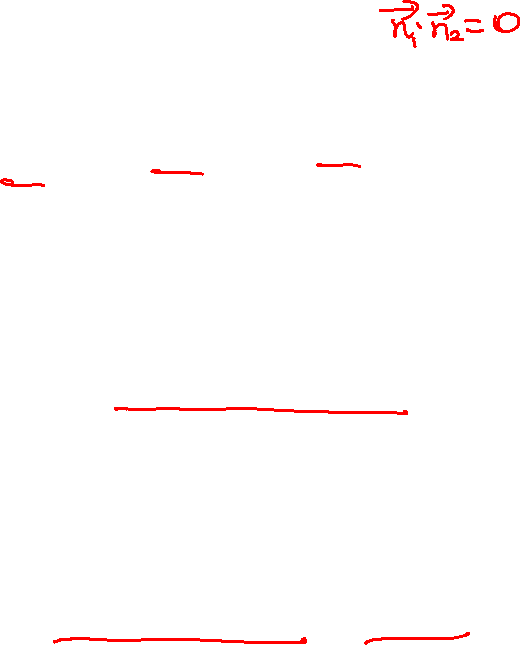 $\vec{n_1} \cdot \vec{n_2} = 0$